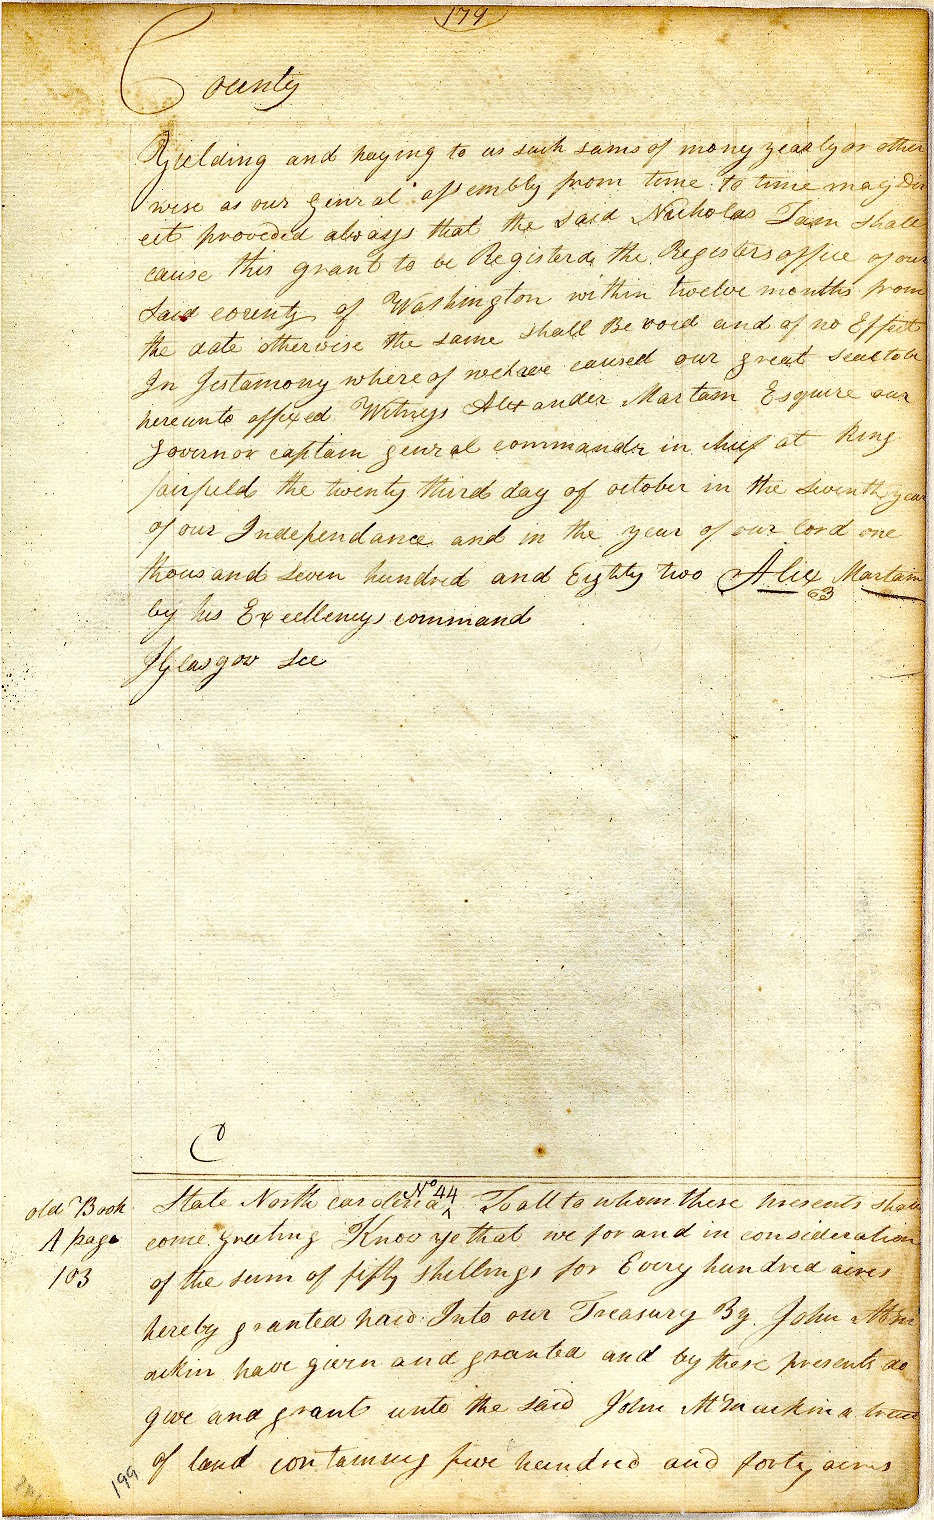 179
County
Yielding and paying to us such sums of mony yearly or other
wise as our genral assembly from time to time may dir
ect proveded always that the said Nicholas shall
cause this grant to be Registerd the Registers office of our
said county of Washington within twelve months from
the date otherwise the same shall Be void and of no Effect
In Testamony where of we have caused our great seal to be
hereunto affixed Witness Alexander Martain Esquire our
Governor captain genral commander in chief at king
fairfield the twenty third day of october in the seventh year
of our Independance and in the year of our lord one
thousand seven hundred and Eighty two Alex Martain
63
by his Excellencys command
J Glasgow Sec
C
State North carolina No 44 To all to whom these presents shall
old Book
A page
103
come greeting Know ye that we for and in consideration
of the sum of fifty shellings for Every hundred acres
hereby granted paid Into our Treasury By John
have given and granted and by these presents do
give and grant unto the said John a tract
of land containing five hundred and forty acres
199